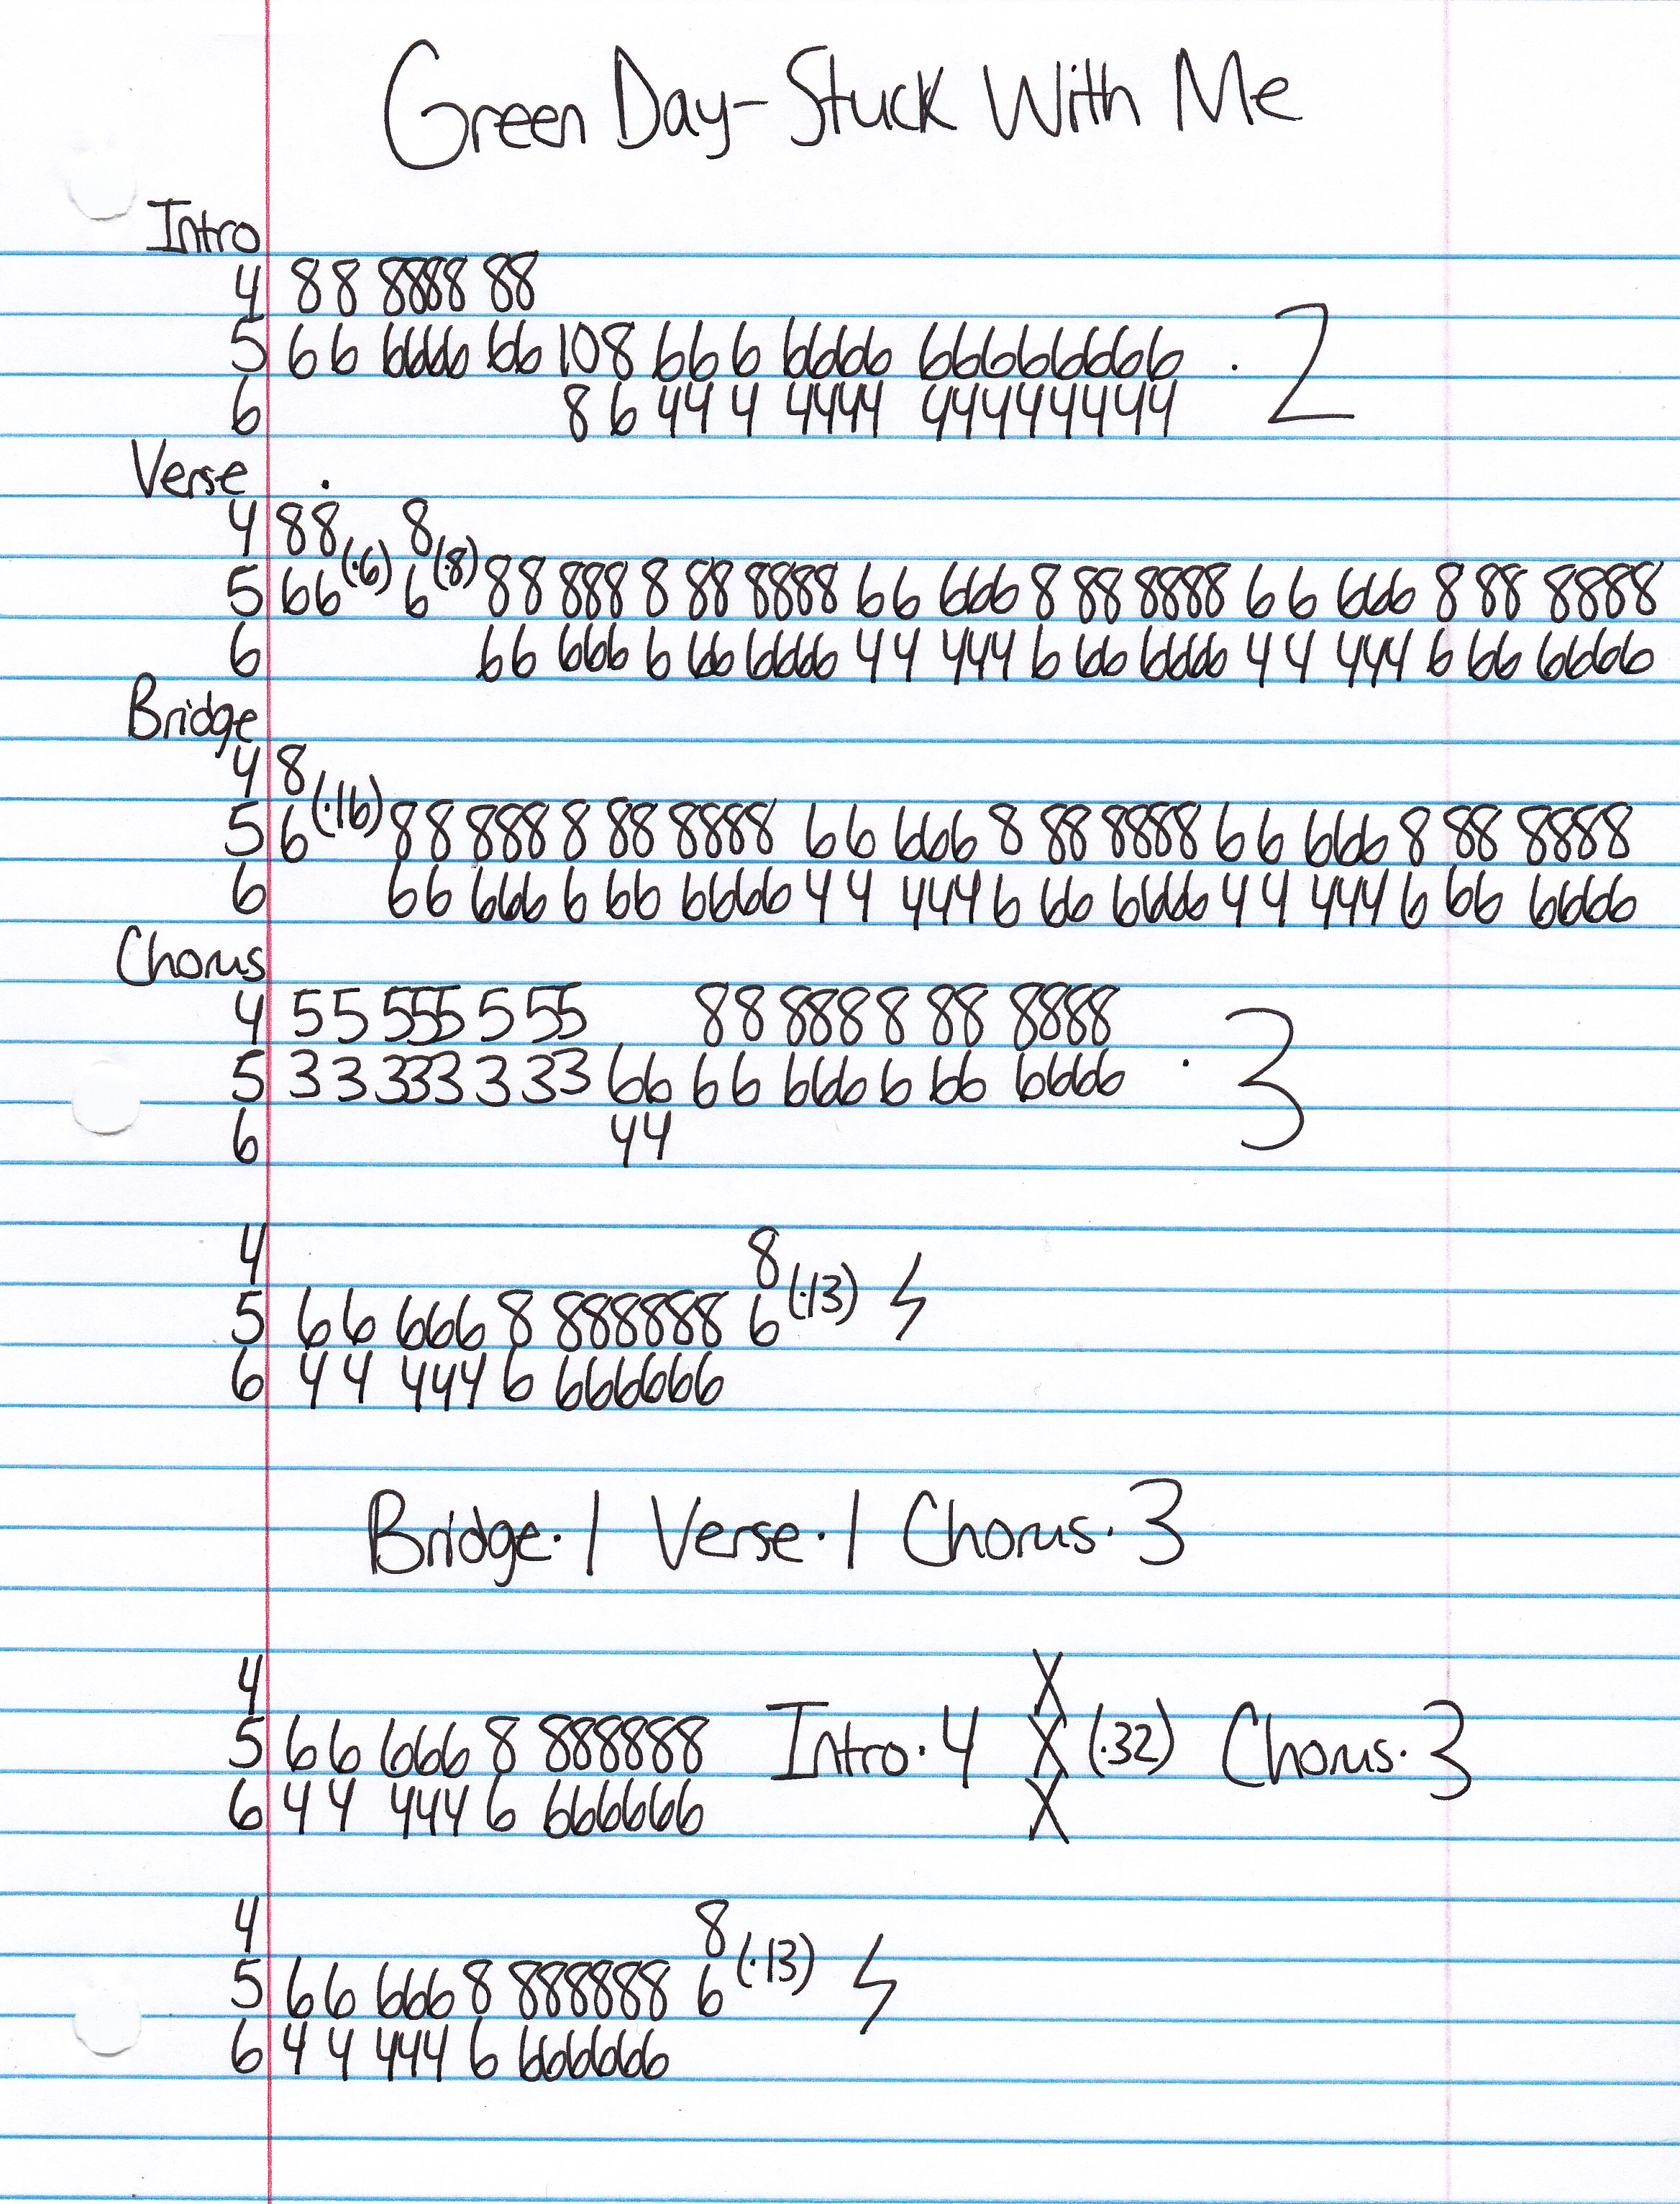 Green Day - Stuck With Me
Intro
4 88 8888 88
5 66 6666 66 108 66 6 6666 66666666 · 2
6 8 6 44 4 4444 44444444
Verse
4 88 8
5 66(·6) 6(·8) 88 888 8 88 8888 66 666 8 88 8888 66 666 8 88 8888
6 66 666 6 66 6666 44 444 6 66 6666 44 444 6 66 6666
Bridge
4 8
5 6(·16) 88 888 8 88 8888 66 666 8 88 8888 66 666 8 88 8888
6 66 666 6 66 6666 44 444 6 66 6666 44 444 6 66 6666
Chorus
4 55 555 5 55 88 888 8 88 8888
5 33 333 3 33 66 66 666 6 66 6666 · 3
6 44
4 8
5 66 666 8 888888 6(·13)
6 44 444 6 666666
Bridge·1 Verse·1 Chorus·3
4 X
5 66 666 8 888888 Intro·4 X (·32) Chorus·3
6 44 444 6 666666 X
4 8
5 66 666 8 888888 6(·13)
6 44 444 6 666666